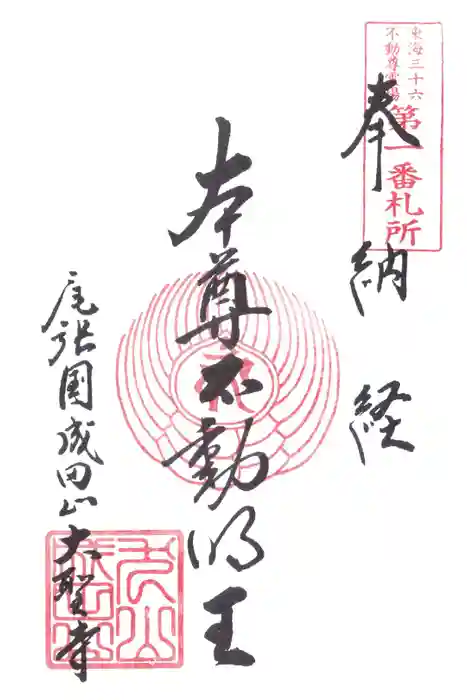 東海三十六
不動尊霊場
第一番札所
奉納経
本尊不動明王
尾張国成田山
大聖寺